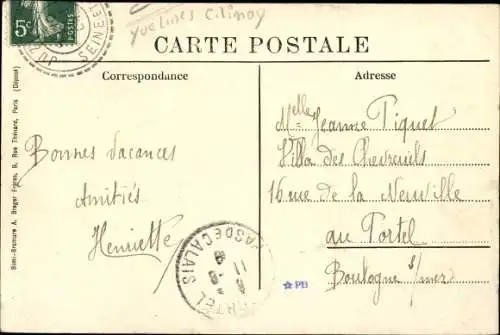 5c
POSTES
SEINE
Yvelines
CARTE POSTALE
Correspondance
Adresse
Bonnes Vacances
Amitiés
Henriette
Melle Jeanne Piquet
Villa des Chevreuils
16 rue de la Neuville
au Portel
Boulogne s/mer
PAS DE CALAIS
11
PB
Simi-Bromure A. Breger Frères, 9, Rue Thénard, Paris (Déposé)